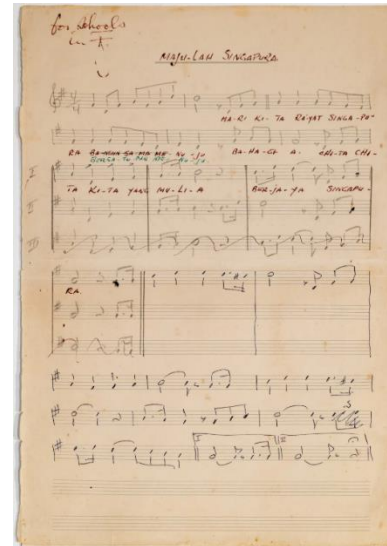 for schools
in F.
MAJU-LAH SINGAPURA
MA-RI KI-TA RA'YAT SINGA-PU-
RA SA-MA SA-MA ME-NU-JU BA-HA-GI A- CHI-TA CHI-
I
TA KI-TA YANG MU-LI-A BER-JA-YA SINGAPU-
II
III
RA.
I II